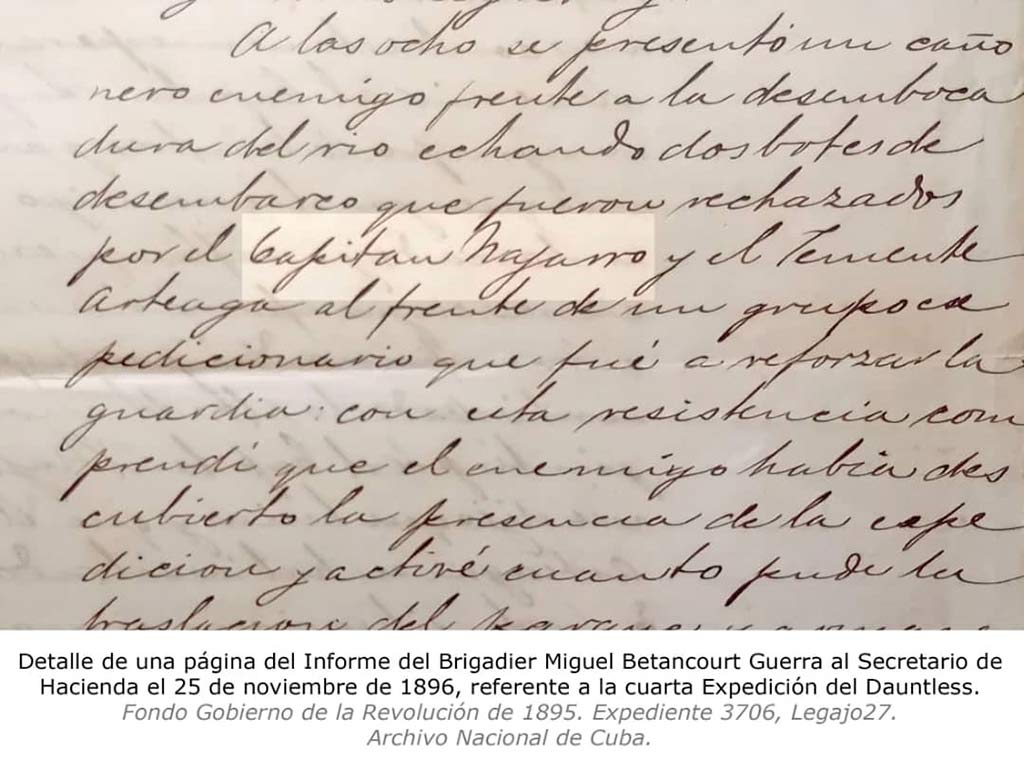 A las ocho se presentó un caño
nero enemigo frente a la desemboca
dura del rio echando dos botes de
desembarco que fueron rechazados
por el Capitan Najarro y el Teniente
Arteaga al frente de un grupo ex
pedicionario que fué a reforzar la
guardia: con esta resistencia com
prendi que el enemigo habia des
cubierto la presencia de la expe
dicion y activé cuanto pude la
traslacion del
Detalle de una página del Informe del Brigadier Miguel Betancourt Guerra al Secretario de
Hacienda el 25 de noviembre de 1896, referente a la cuarta Expedición del Dauntless.
Fondo Gobierno de la Revolución de 1895. Expediente 3706, Legajo27.
Archivo Nacional de Cuba.